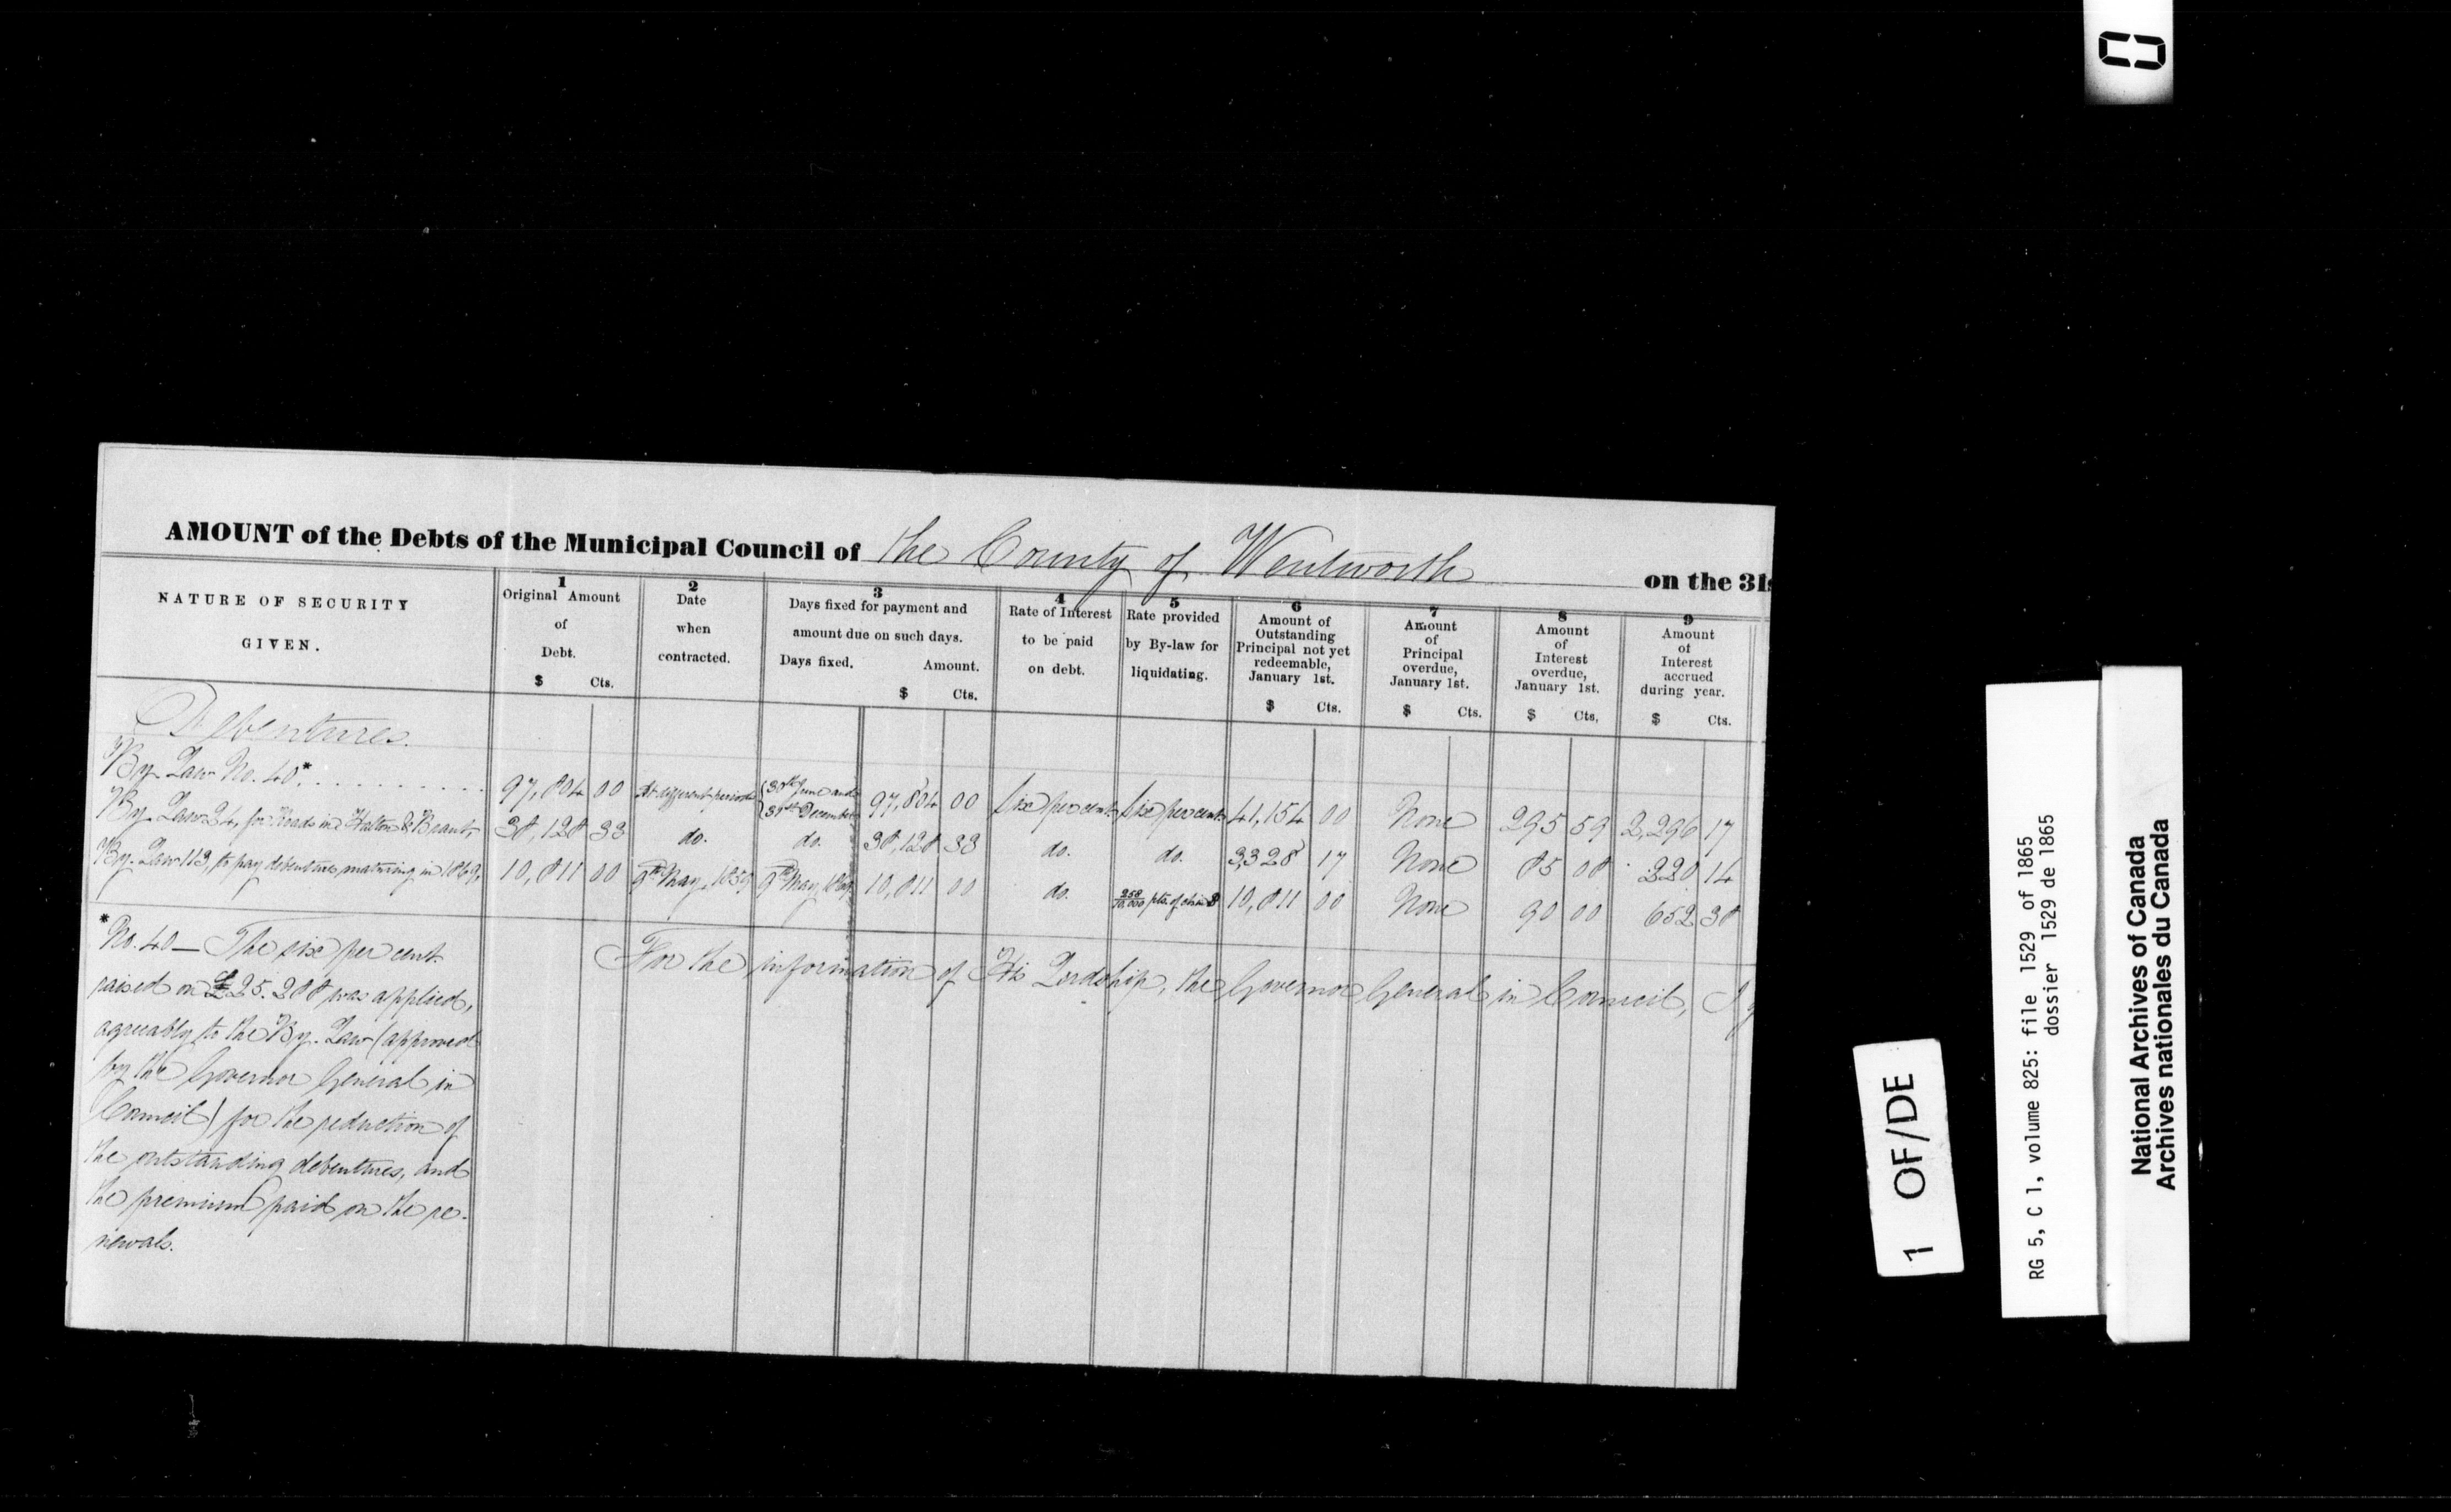 AMOUNT of the Debts of the Municipal Council of the County of Wentworth on the 31s
NATURE OF SECURITY GIVEN.
1 Original Amount of Debt. $ Cts.
2 Date when contracted.
3 Days fixed for payment and amount due on such days. Days fixed. Amount. $ Cts.
4 Rate of Interest to be paid on debt.
5 Rate provided by By-law for liquidating.
6 Amount of Outstanding Principal not yet redeemable, January 1st. $ Cts.
7 Amount of Principal overdue, January 1st. $ Cts.
8 Amount of Interest overdue, January 1st. $ Cts.
9 Amount of Interest accrued during year. $ Cts.
Debentures.
By-Law No. 40* 97,804 00 At different periods {30th June and 31st December 97,804 00 six per cent. six per cent. 41,154 00 None 295 59 2,296 17
By-Law 24, for Roads in Halton & Brant, 38,128 33 do. do. 38,128 33 do. do. 3,328 17 None 85 08 220 14
By-Law 113, to pay debentures maturing in 1869, 10,811 00 9th May, 1859 9th May, 1869 10,811 00 do. pts. of 10,811 00 None 90 00 652 38
*No. 40 — The six per cent.
raised on £25.288 was applied,
agreeably to the By-Law (approved
by the Governor General in
Council) for the reduction of
the outstanding debentures, and
the premium paid on the re-
newals.
For the information of His Lordship, the Governor General in Council, I
1 OF/DE
RG 5, C 1, volume 825: file 1529 of 1865
dossier 1529 de 1865
National Archives of Canada
Archives nationales du Canada